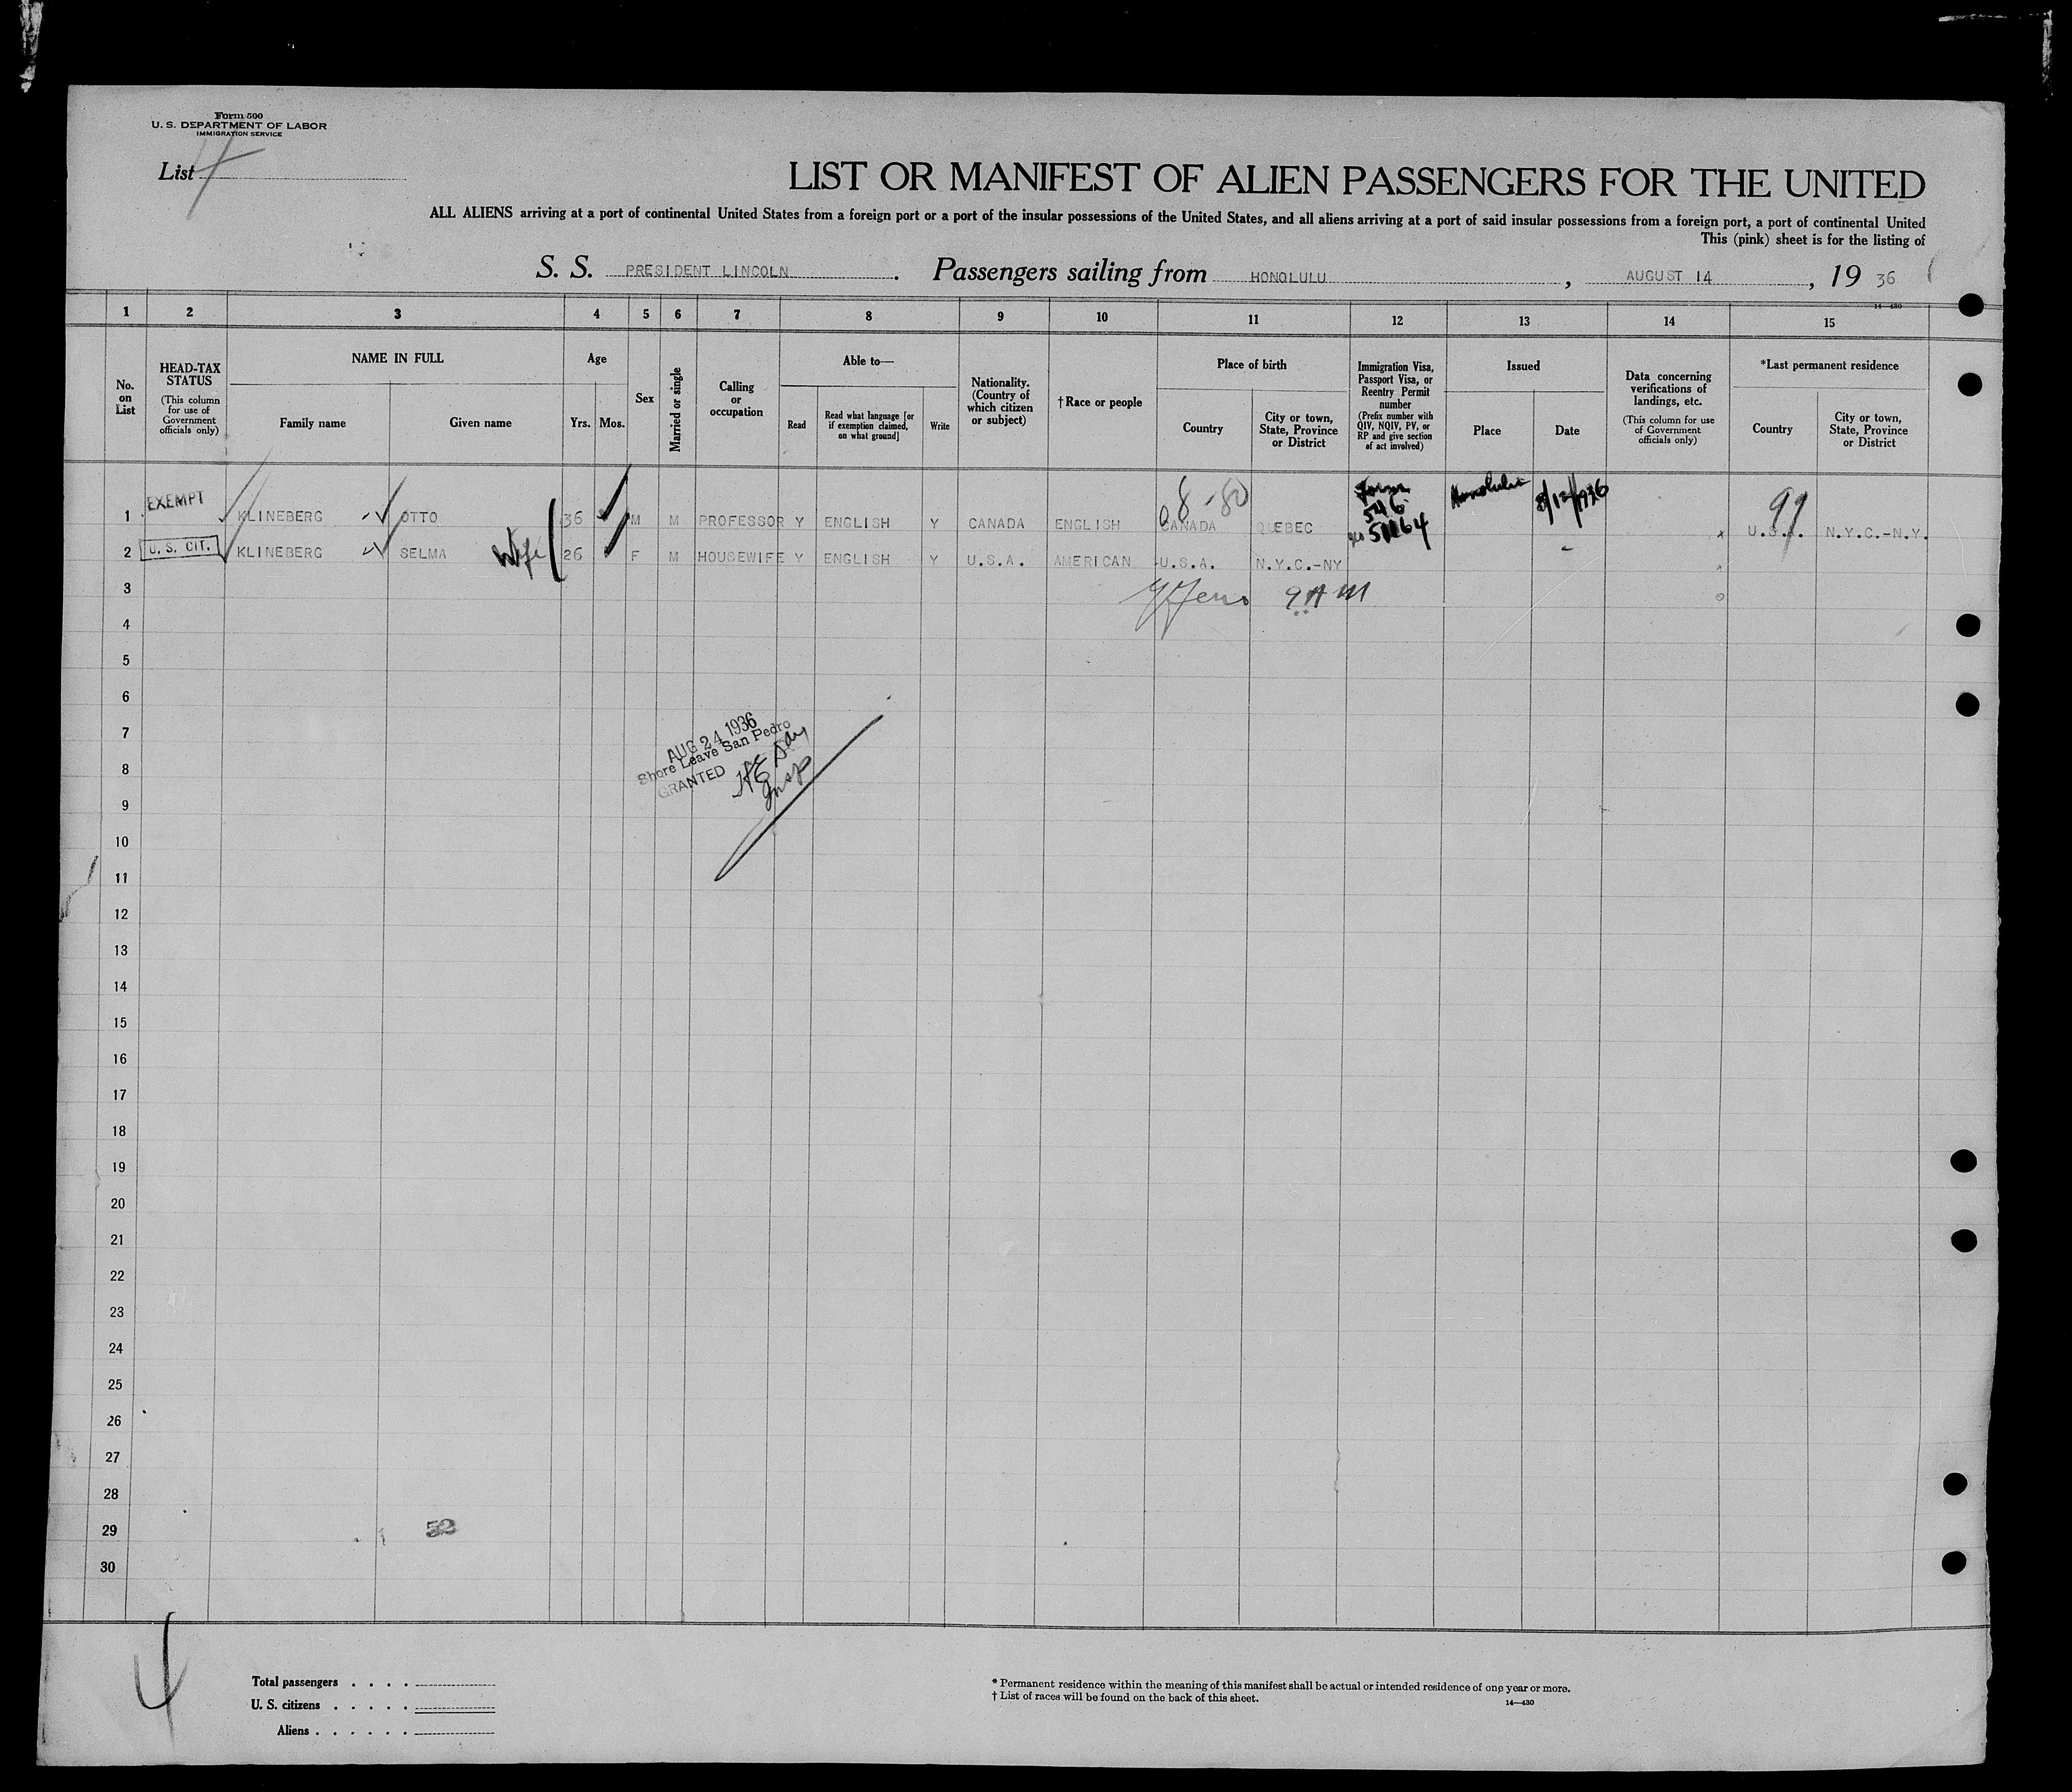 Form 500
U. S. DEPARTMENT OF LABOR
IMMIGRATION SERVICE
List 4
LIST OR MANIFEST OF ALIEN PASSENGERS FOR THE UNITED
ALL ALIENS arriving at a port of continental United States from a foreign port or a port of the insular possessions of the United States, and all aliens arriving at a port of said insular possessions from a foreign port, a port of continental United
This (pink) sheet is for the listing of
S. S. PRESIDENT LINCOLN. Passengers sailing from HONOLULU, AUGUST 14, 19 36
14—430
1 2 3 4 5 6 7 8 9 10 11 12 13 14 15
No. on List
HEAD-TAX STATUS (This column for use of Government officials only)
NAME IN FULL
Family name Given name
Age
Yrs. Mos.
Sex
Married or single
Calling or occupation
Able to—
Read
Read what language [or if exemption claimed, on what ground]
Write
Nationality. (Country of which citizen or subject)
†Race or people
Place of birth
Country
City or town, State, Province or District
Immigration Visa, Passport Visa, or Reentry Permit number (Prefix number with QIV, NQIV, PV, or RP and give section of act involved)
Issued
Place Date
Data concerning verifications of landings, etc. (This column for use of Government officials only)
*Last permanent residence
Country
City or town, State, Province or District
8-80 Form 546 Honolulu 8/12/1936 91
1 EXEMPT KLINEBERG OTTO 36 M M PROFESSOR Y ENGLISH Y CANADA ENGLISH CANADA QUEBEC 51164 U.S.A. N.Y.C.-N.Y.
2 U. S. CIT. KLINEBERG SELMA Wife 26 F M HOUSEWIFE Y ENGLISH Y U.S.A. AMERICAN U.S.A. N.Y.C.-NY
3 9 AM
4
5
6
7
AUG 24 1936
Shore Leave San Pedro
GRANTED
Insp
8
9
10
11
12
13
14
15
16
17
18
19
20
21
22
23
24
25
26
27
28
29 52
30
4
Total passengers . . . .
U. S. citizens . . . . .
Aliens . . . . . .
* Permanent residence within the meaning of this manifest shall be actual or intended residence of one year or more.
† List of races will be found on the back of this sheet.
14—430